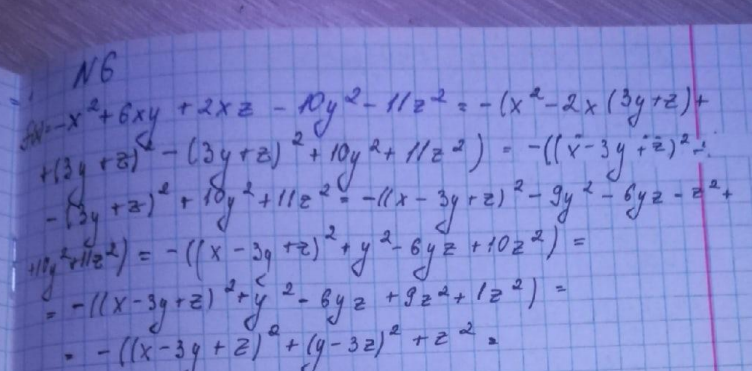 N6
f(x)=-x²+6xy+2xz-10y²-11z²=-(x²-2x(3y+z)+
+(3y+z)²-(3y+z)²+10y²+11z²)=-((x-3y+z)²-
-(3y+z)²+10y²+11z²=-((x-3y+z)²-9y²-6yz-z²+
+10y²+11z²)=-((x-3y+z)²+y²-6yz+10z²)=
=-((x-3y+z)²+y²-6yz+9z²+1z²)=
=-((x-3y+z)²+(y-3z)²+z²=